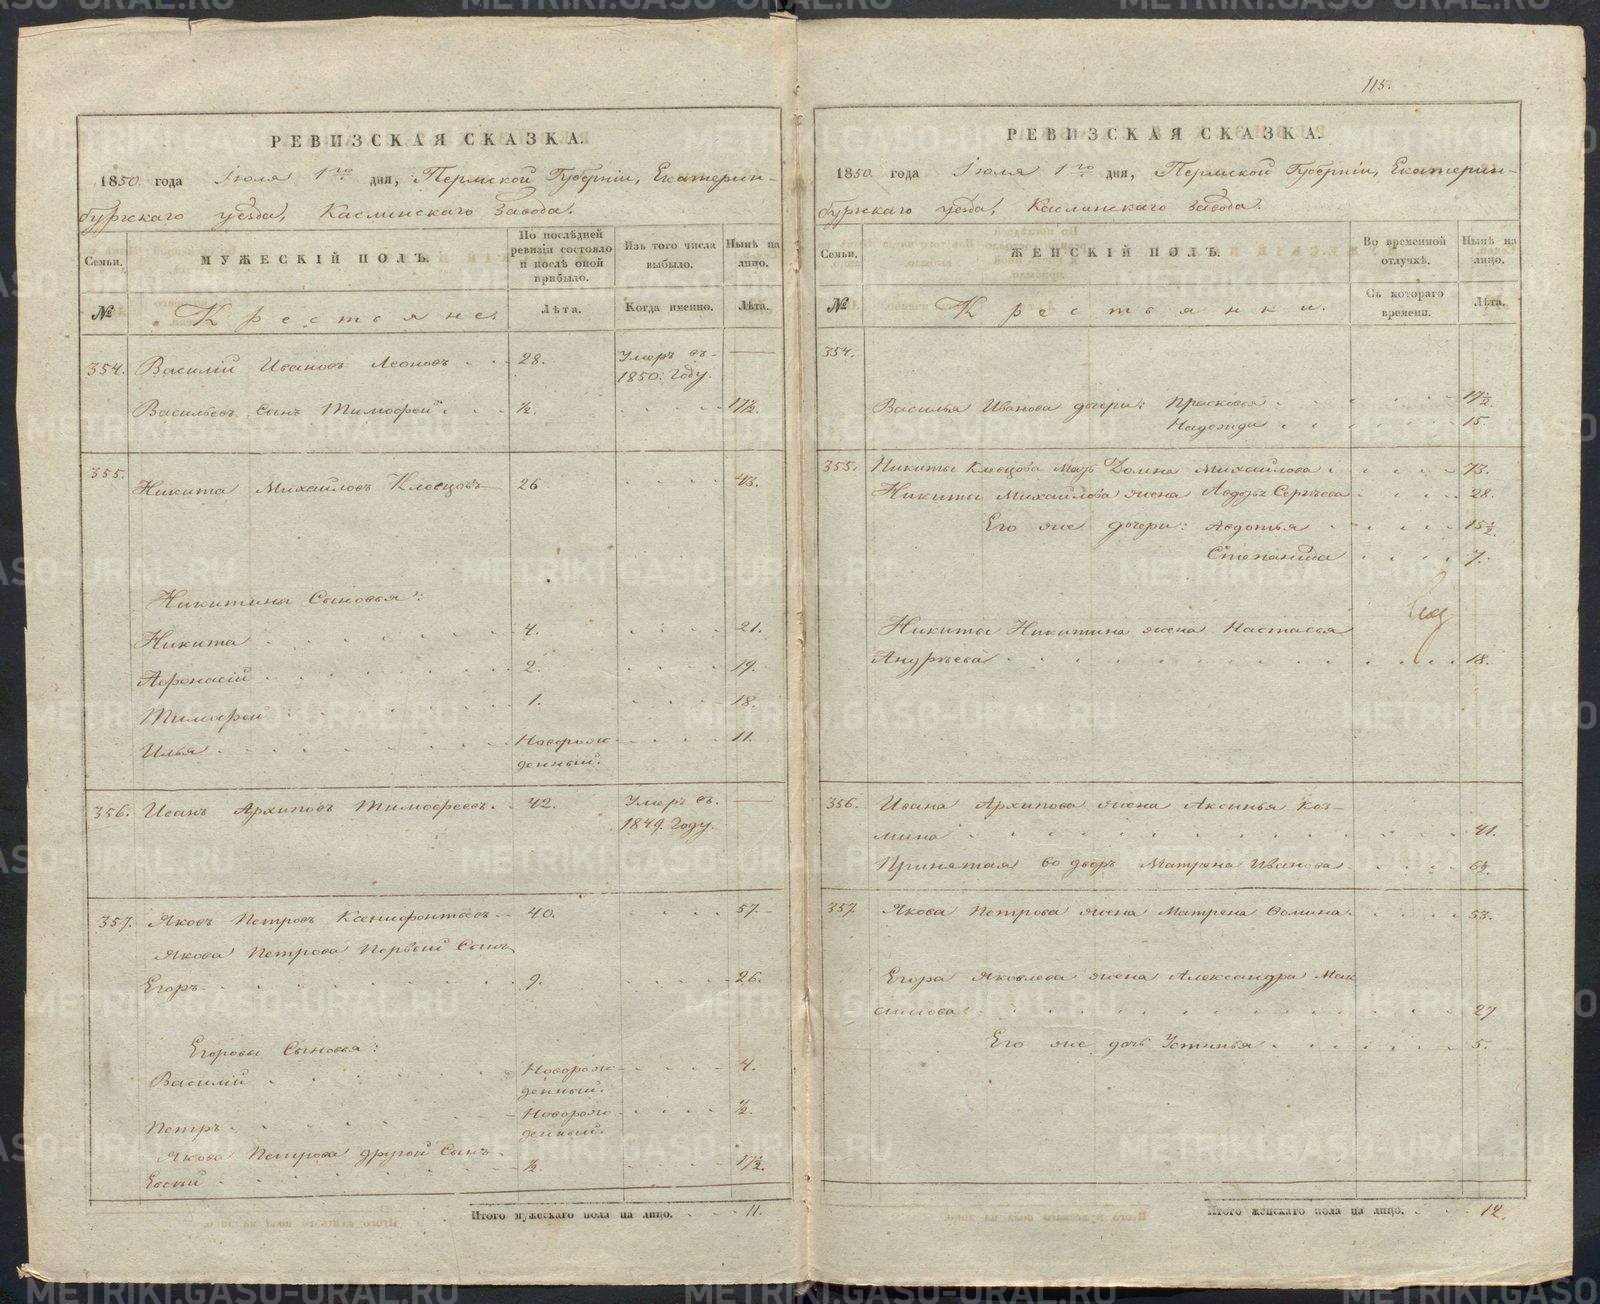 115.
РЕВИЗСКАЯ СКАЗКА.
1850 года Іюля 1го дня, Пермской Губерніи, Екатерин-
бургскаго уезда, Каслинскаго Завода.
Семьи. МУЖЕСКІЙ ПОЛЪ. По послѣдней ревизіи состояло и послѣ оной прибыло. Изъ того числа выбыло. Нынѣ на лицо.
№ Крестьяне. Лѣта. Когда именно. Лѣта.
354. Василій Ивановъ Леоновъ 28. Умеръ въ 1850. Году. —
Васильевъ сынъ Тимофей ½. 17½.
355. Никита Михайловъ Клепцовъ 26 43.
Никитины Сыновья:
Никита 4. 21.
Афонасій 2. 19.
Тимофей 1. 18.
Илья Новорож-
денный. 11.
356. Иванъ Архиповъ Тимофеевъ. 42. Умеръ въ. —
1849. Году.
357. Яковъ Петровъ Ксенифонтьевъ 40. 57.
Якова Петрова Первый Сынъ
Егоръ 9. 26.
Егоровы Сыновья:
Василій Новорож-
денный. 4.
Петръ Новорож-
денный. ½.
Якова Петрова другой Сынъ
Евсѣй ½. 17½.
Итого мужескаго пола на лицо. 11.
РЕВИЗСКАЯ СКАЗКА.
1850. года Іюля 1го дня, Пермской Губерніи, Екатерин-
бургскаго уезда, Каслинскаго Завода.
Семьи. ЖЕНСКІЙ ПОЛЪ. Во временной отлучкѣ. Нынѣ на лицо.
№ Крестьянки. Съ котораго времени. Лѣта.
354.
Василья Иванова дочери: Прасковья 17½.
Надежда 15.
355. Никиты Клепцова Мать Домна Михайлова 73.
Никиты Михайлова жена Авдотья Сергѣева 28.
Его же дочери: Авдотья 15½.
Степанида 7.
Никиты Никитина жена Настасья
Андрѣева 18.
356. Ивана Архипова жена Аксинья Коз-
мина 41.
Принятая во дворъ Матрена Иванова 6½.
357. Якова Петрова жена Матрена Фомина 53.
Егора Яковлева жена Александра Мак
симова 27.
Его же дочь Устинья 5.
Итого женскаго пола на лицо. 12.
METRIKI.GASO-URAL.RU